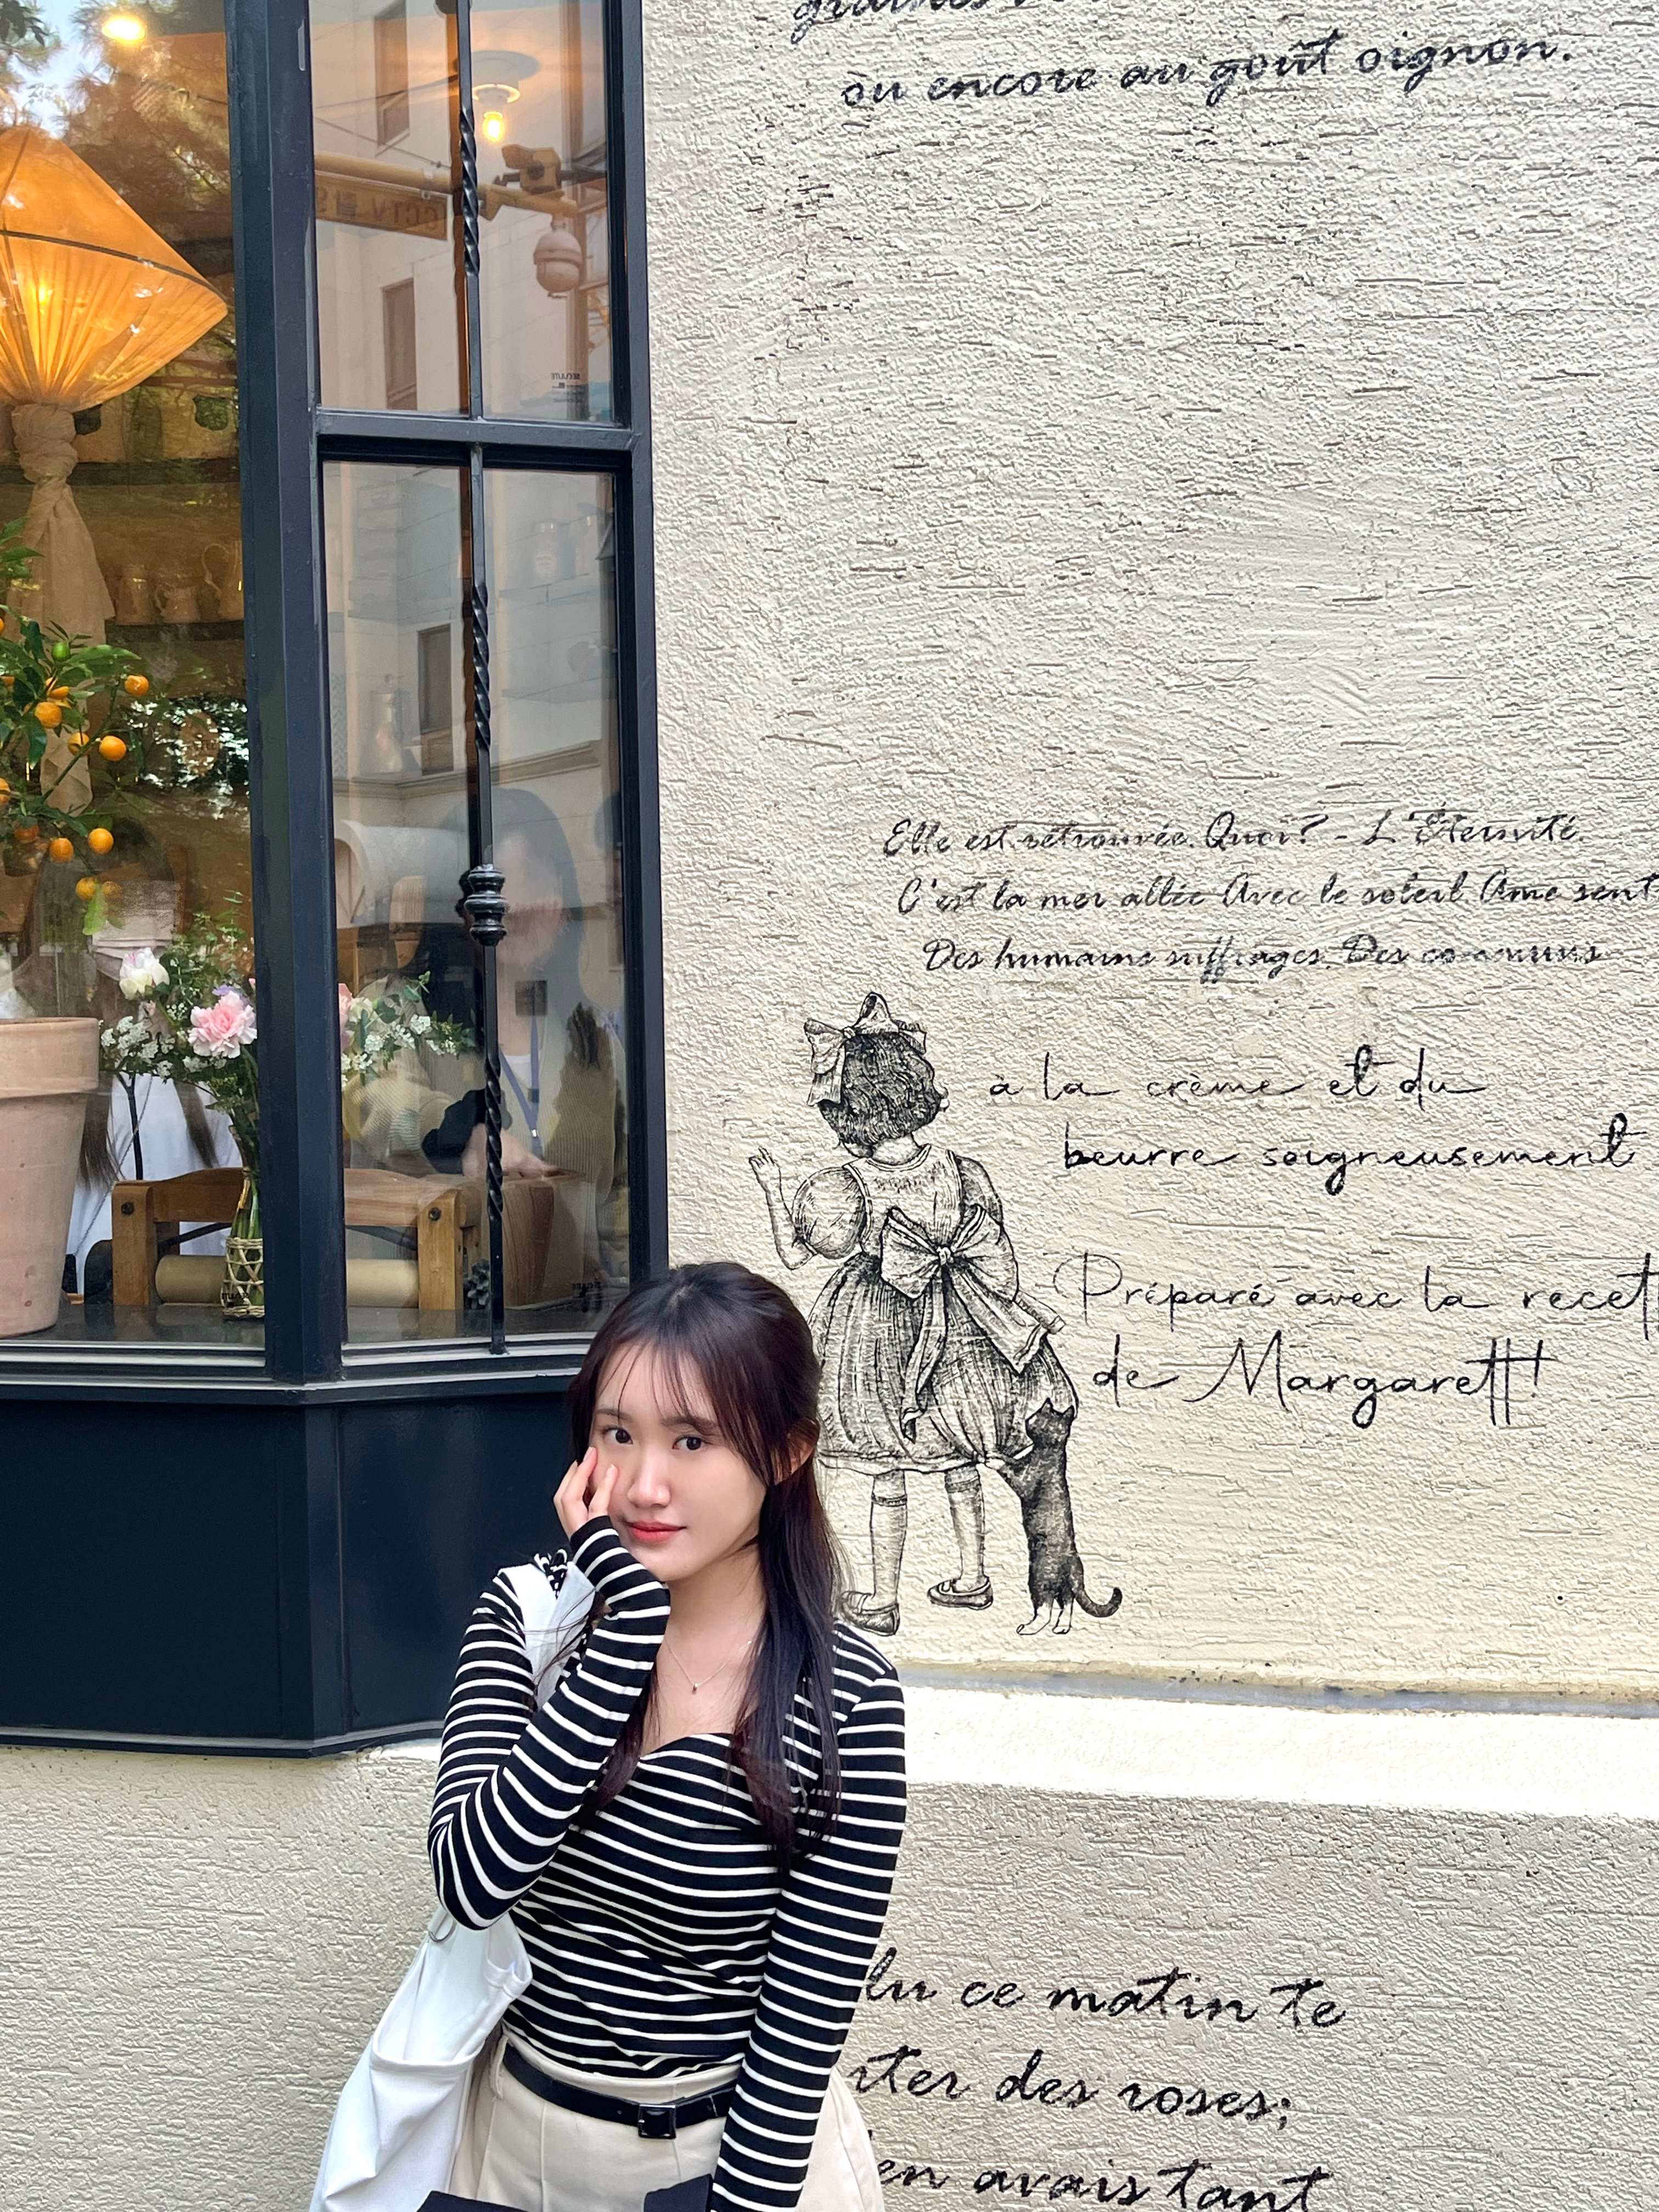 ou encore au goût oignon.
Elle est retrouvée. Quoi? - L'Éternité.
C'est la mer allée Avec le soleil Ame sent
Des humains suffrages. Des communs
à la crème et du
beurre soigneusement
Préparé avec la recett
de Margarett!
lu ce matin te
rter des roses;
en avais tant